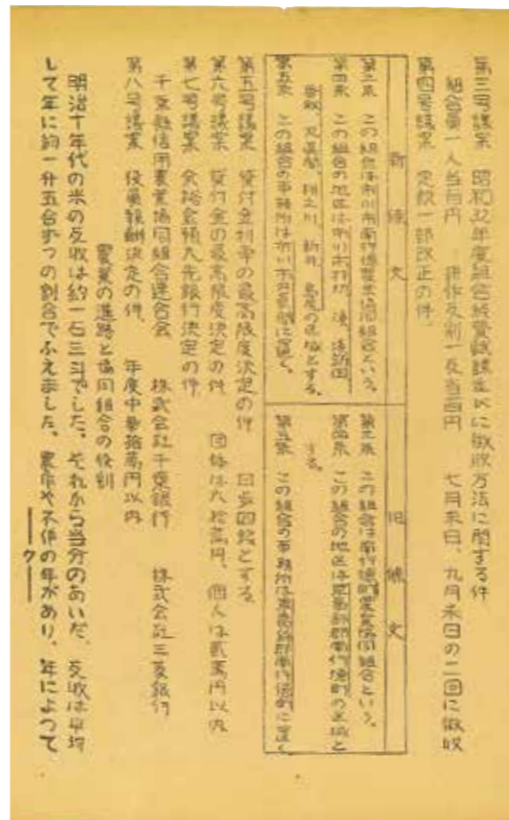 第三号議案 昭和32年度組合経費賦課並びに徴収方法に関する件
組合員一人当百円 耕作反別一反当百円 七月末日、九月末日の二回に徴収
第四号議案 定款一部改正の件
新 條 文
第二条 この組合は市川市南行徳農業協同組合という。
第四条 この組合の地区は市川市 湊、湊新田
欠真間、 新井、島尻の区域とする。
第五条 この組合の事務所は市川市 に置く。
旧 條 文
第二条 この組合は南行徳町農業協同組合という。
第四条 この組合の地区は東葛飾郡南行徳町の区域と
する。
第五条 この組合の事務所は東葛飾郡南行徳町に置く。
第五号議案 貸付金利率の最高限度決定の件 日歩四銭とする
第六号議案 貸付金の最高限度決定の件 団体は六拾萬円、個人は貳萬円以内
第七号議案 余裕金預入先銀行決定の件
千葉県信用農業協同組合連合会 株式会社千葉銀行 株式会社三菱銀行
第八号議案 役員報酬決定の件 年度中 拾萬円以内
農業の進路と協同組合の役割
明治十年代の米の反収は約一石三斗でした。それから当分のあいだ、反収は平均
して年に約一升五合ずつの割合でふえました。 や不作の年があり、年によつて